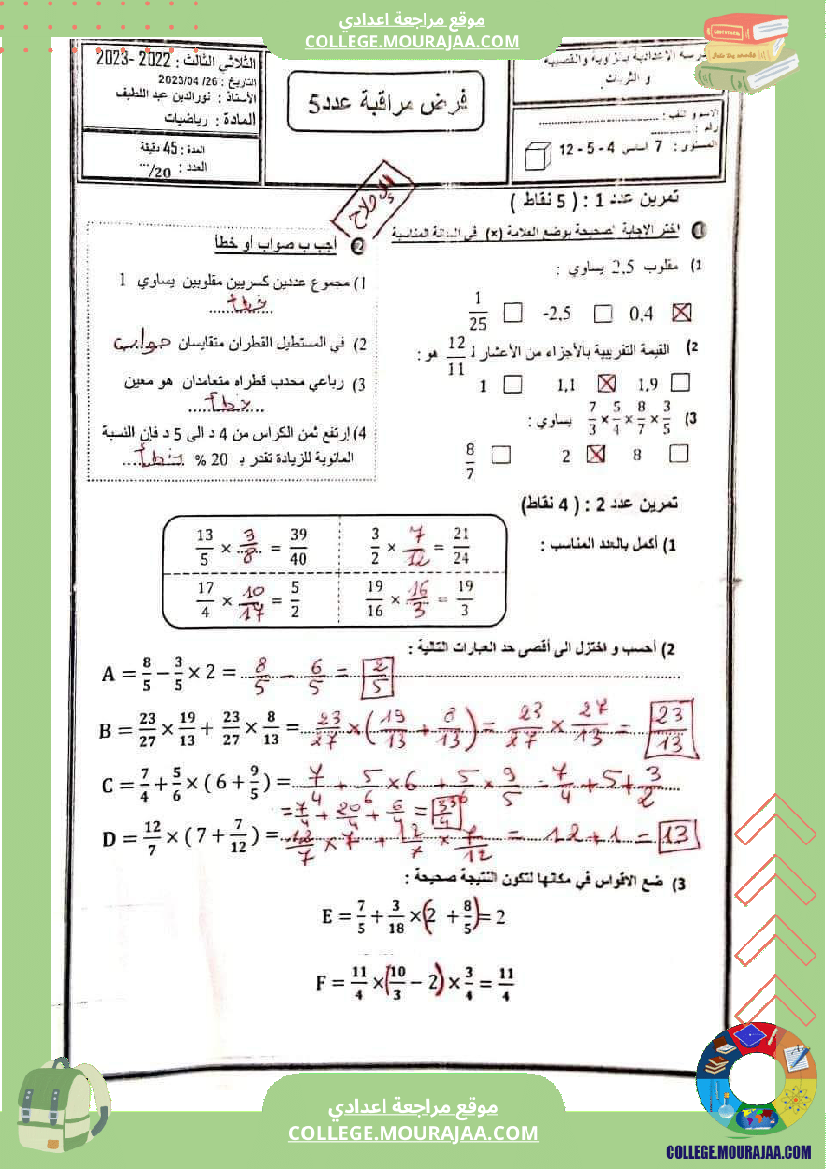 موقع مراجعة اعدادي
COLLEGE.MOURAJAA.COM
المدرسة الإعدادية بالزاوية والقصيبة
و الثريات
الإسم و اللقب : ..............
رقم : ..............
المستوى : 7 أساسي 4 - 5 - 12
فرض مراقبة عدد5
الثلاثي الثالث : 2022 -2023
التاريخ : 26/ 04/2023
الأستاذ : نورالدين عبد اللطيف
المادة : رياضيات
المدة : 45 دقيقة
العدد : .../20
الإصلاح
تمرين عدد 1 : ( 5 نقاط )
❶ اختر الإجابة الصحيحة بوضع العلامة (x) في الخانة المناسبة
1) مقلوب 2,5 يساوي :
0,4 ☒ -2,5 ☐ 1/25 ☐
2) القيمة التقريبية بالأجزاء من الأعشار لـ 12/11 هو :
1,9 ☐ 1,1 ☒ 1 ☐
3) 7/3 × 5/4 × 8/7 × 3/5 يساوي :
8 ☐ 2 ☒ 8/7 ☐
❷ أجب ب صواب أو خطأ
1) مجموع عددين كسريين مقلوبين يساوي 1
خطأ
2) في المستطيل القطران متقايسان صواب
3) رباعي محدب قطراه متعامدان هو معين
خطأ
4) إرتفع ثمن الكراس من 4 د الى 5 د فإن النسبة
المائوية للزيادة تقدر بـ 20 % خطأ
تمرين عدد 2 : ( 4 نقاط)
1) أكمل بالعدد المناسب :
13/5 × 3/8 = 39/40 3/2 × 7/12 = 21/24
17/4 × 10/17 = 5/2 19/16 × 16/3 = 19/3
2) أحسب و اختزل الى أقصى حد العبارات التالية :
A = 8/5 − 3/5 × 2 = 8/5 - 6/5 = 2/5
B = 23/27 × 19/13 + 23/27 × 8/13 = 23/27 × (19/13 + 8/13) = 23/27 × 27/13 = 23/13
C = 7/4 + 5/6 × ( 6 + 9/5 ) = 7/4 + 5/6 × 6 + 5/6 × 9/5 = 7/4 + 5 + 3/2
= 7/4 + 20/4 + 6/4 = 33/4
D = 12/7 × ( 7 + 7/12 ) = 12/7 × 7 + 12/7 × 7/12 = 12 + 1 = 13
3) ضع الأقواس في مكانها لتكون النتيجة صحيحة :
E = 7/5 + 3/18 × (2 + 8/5) = 2
F = 11/4 × (10/3 − 2) × 3/4 = 11/4
موقع مراجعة اعدادي
COLLEGE.MOURAJAA.COM
COLLEGE.MOURAJAA.COM